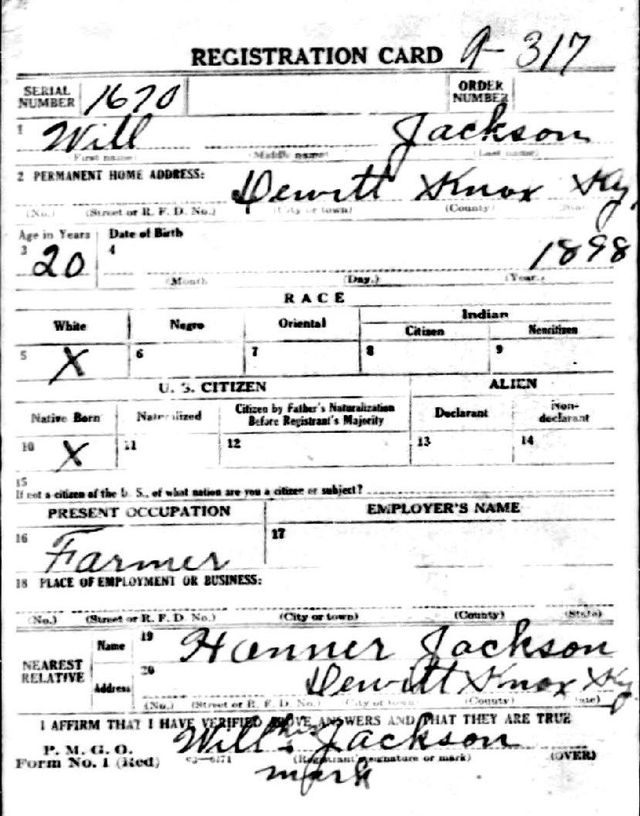 REGISTRATION CARD A-317
SERIAL NUMBER 1670 ORDER NUMBER
1 Will Jackson
(First name) (Middle name) (Last name)
2 PERMANENT HOME ADDRESS: Dewitt Knox Ky
(No.) (Street or R. F. D. No.) (City or town) (County) (State)
Age in Years Date of Birth
3 20 4 1898
(Month) (Day.) (Year.)
RACE
White Negro Oriental Indian
Citizen Noncitizen
5 X 6 7 8 9
U. S. CITIZEN ALIEN
Native Born Naturalized Citizen by Father's Naturalization Before Registrant's Majority Declarant Non-declarant
10 X 11 12 13 14
15
If not a citizen of the U. S., of what nation are you a citizen or subject?
PRESENT OCCUPATION EMPLOYER'S NAME
16 Farmer 17
18 PLACE OF EMPLOYMENT OR BUSINESS:
(No.) (Street or R. F. D. No.) (City or town) (County) (State)
NEAREST RELATIVE Name 19 Hanner Jackson
Address 20 Dewitt Knox Ky
(No.) (Street or R. F. D. No.) (City or town) (County) (State)
I AFFIRM THAT I HAVE VERIFIED ABOVE ANSWERS AND THAT THEY ARE TRUE
P. M. G. O. Will his Jackson
Form No. 1 (Red) (Registrant's signature or mark) (OVER)
mark